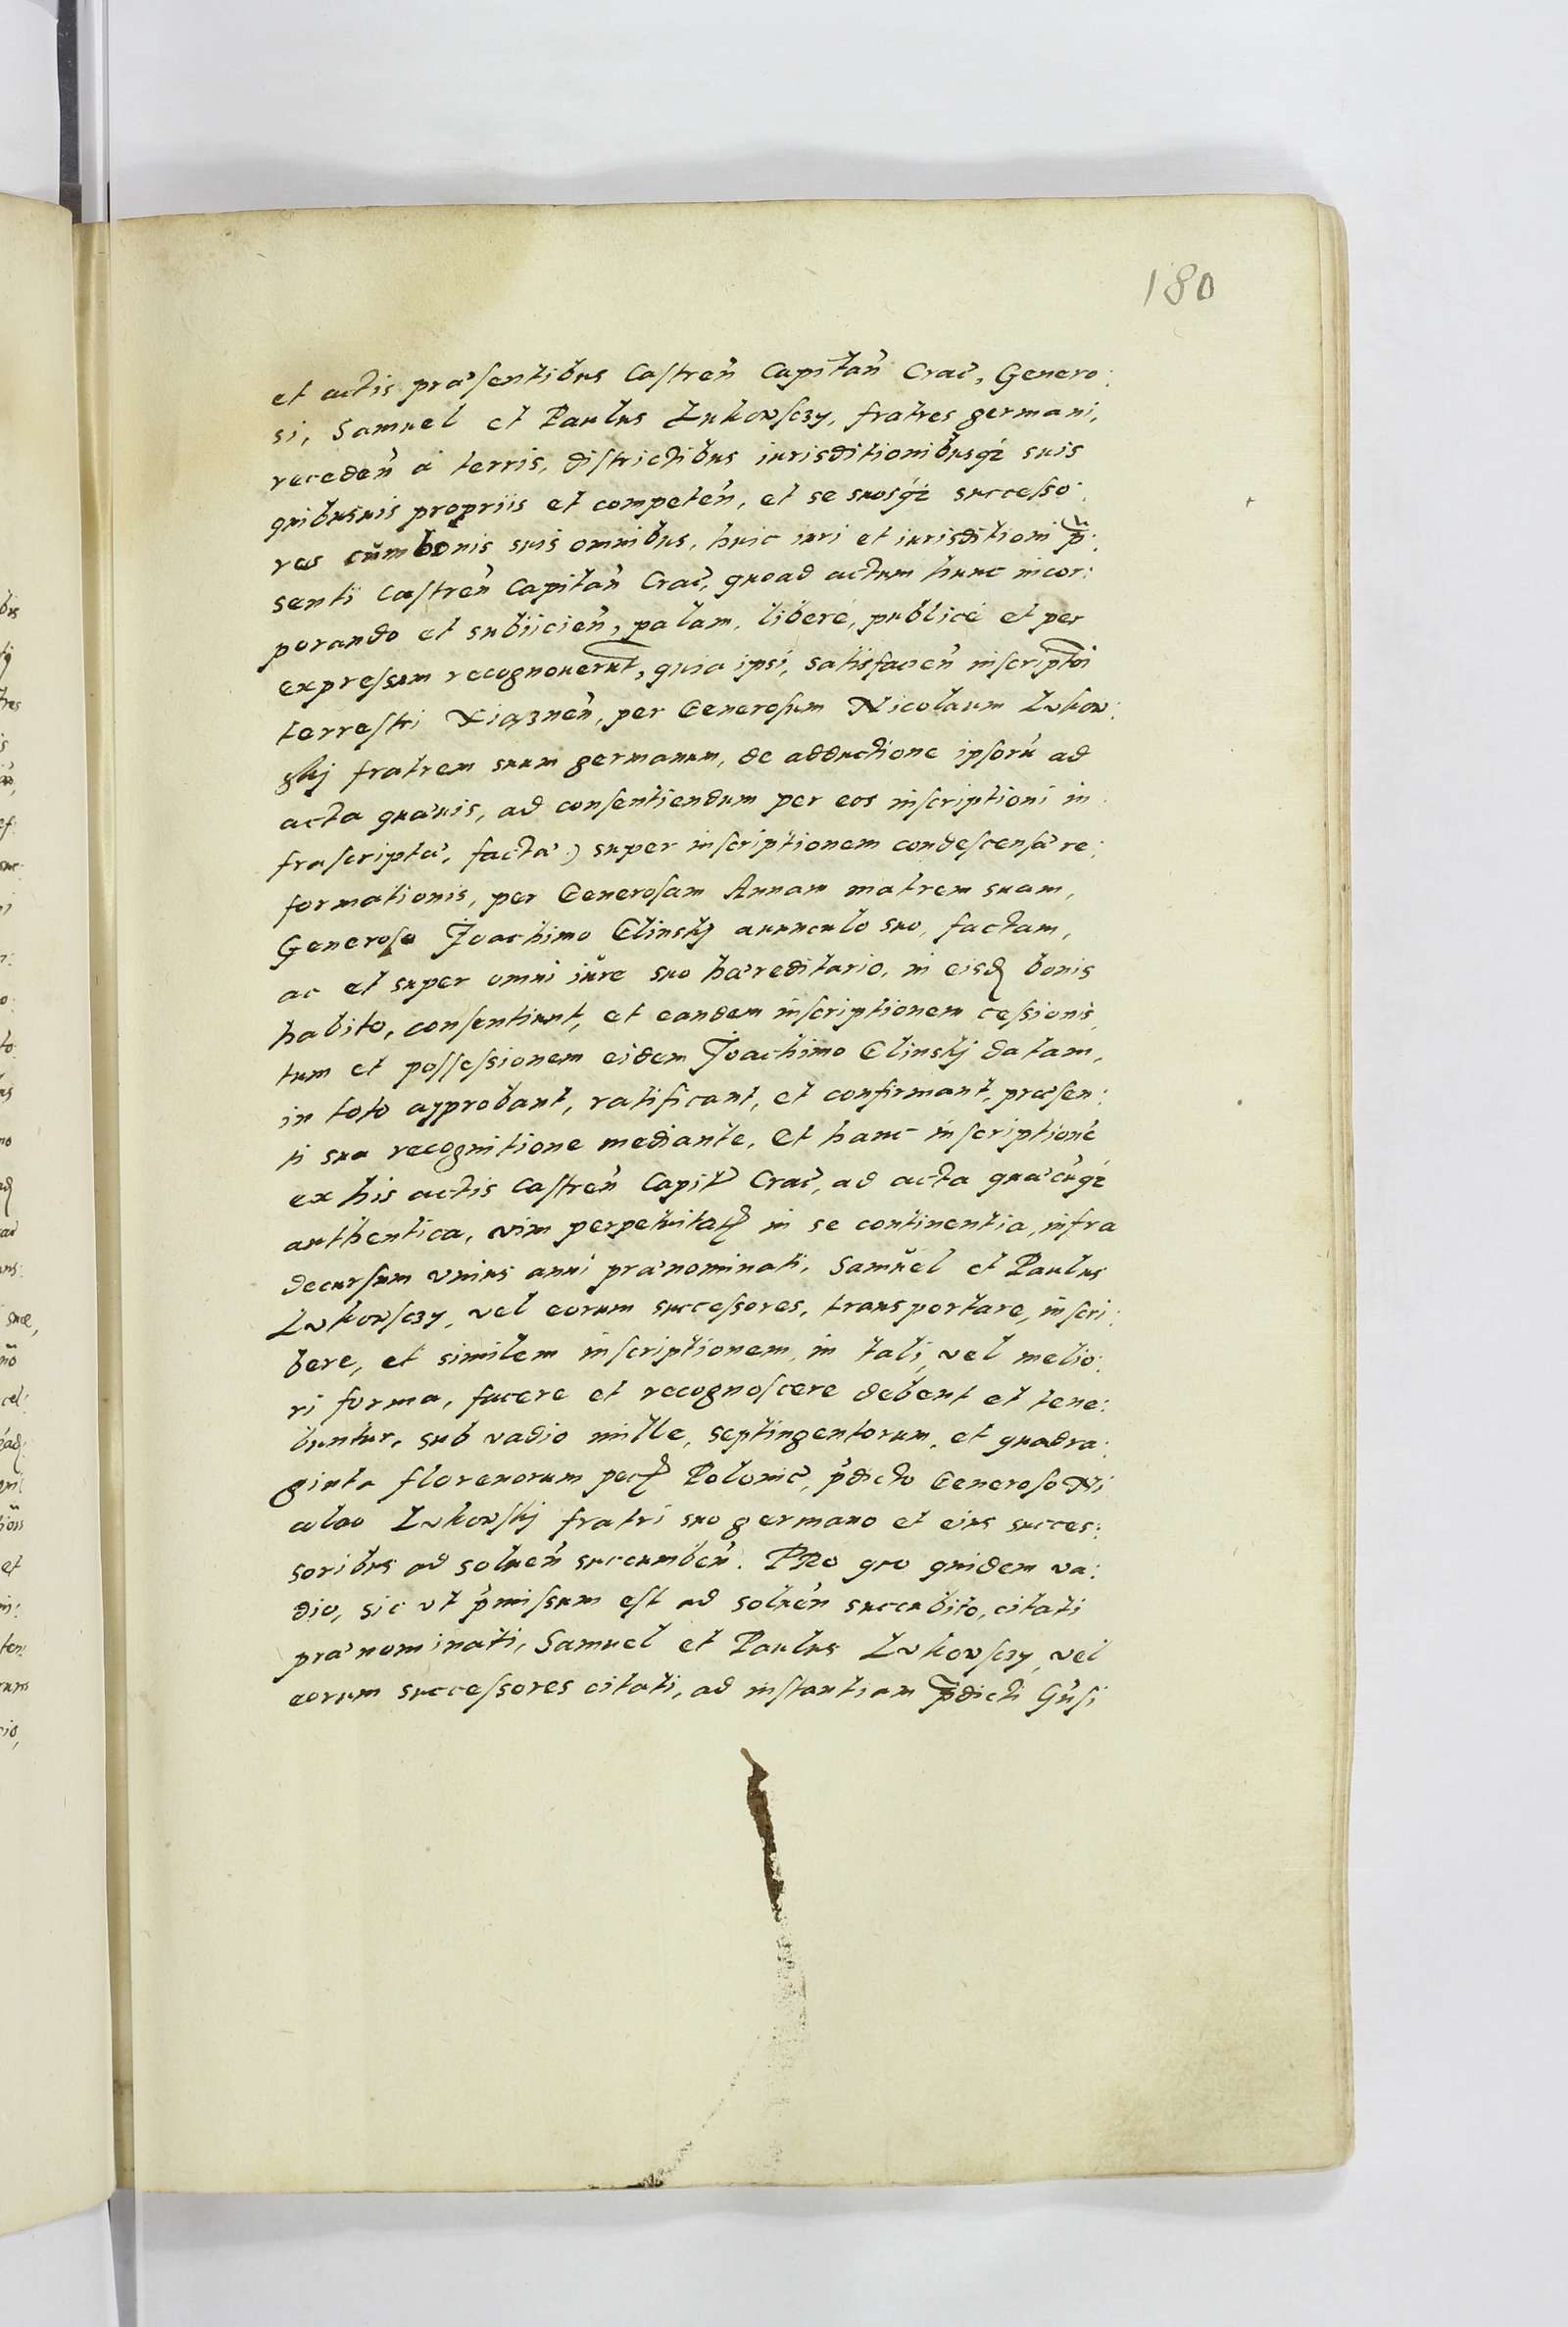 180
et actis præsentibus Castreñ Capitañ Crac̃, Genero:
si, Samuel et Paulus Lukowsczy, fratres germani,
recedeñ à terris, districtibus iurisditionibusq́ suis
quibusuis propriis et competeñ, et se suosq́ successo:
res cŭm bonis suis omnibus, huic iuri et iurisditioni p̃:
senti Castreñ Capitañ Crac̃, quoad actum hunc incor:
porando et subiicieñ, palam, liberé, publicé et per
expressum recognouerũt, quia ipsi, satisfacieñ inscriptõi
terrestri Xiązneñ, per Generosum Nicolaum Lukow:
skij fratrem suum germanum, de adductione ipsorũ ad
acta quæuis, ad consentiendum per eos inscriptioni in
frascriptæ, factæ) super inscriptionem condescensæ re:
formationis, per Generosam Annam matrem suam,
Generoso Joachimo Glinskj auunculo suo, factam,
ac et super omni iŭre suo hæreditario, in eisđ bonis
habito, consentiunt, et eandem inscriptionem cessionis,
tum et possessionem eidem Joachimo Glinskj datam,
in toto approbant, ratificant, et confirmant, præsen:
ti sua recognitione mediante. Et hanc inscriptionẽ
ex his actis Castreñ Capit̃ Crac̃, ad acta quæcũq́
authentica, vim perpetuitat̃ in se continentia, infra
decursum vnius anni prænominati, Samŭel et Paulus
Lukowsczy, vel eorum successores, transportare, inscri:
bere, et similem inscriptionem, in tali, vel melio:
ri forma, facere et recognoscere debent et tene:
buntur, sub vadio mille, septingentorum, et quadra:
ginta florenorum pec̃ Polonic̃, p̃dicto Generoso Ni
colao Lukowskj fratri suo germano et eius succes:
soribus ad solueñ succumbeñ. PRo quo quidem va:
dio, sic vt p̃missum est ad solueñ succubito, citati
prænominati, Samuel et Paulus Lukowsczy, vel
eorum successores citati, ad instantiam p̃dicti Gñsi